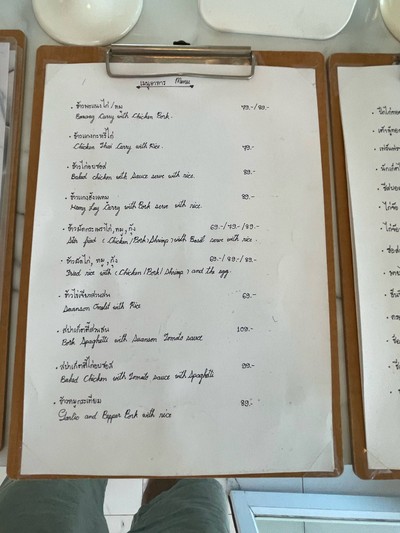 เมนูอาหาร Menu
• ข้าวพะแนงไก่/หมู 79.-/89.-
Panang Curry with Chicken Pork.
• ข้าวแกงกะหรี่ไก่
Chicken Thai Curry with Rice. 79.-
• ข้าวไก่อบซอส 89.-
Baked chicken with sauce serve with rice.
• ข้าวแกงฮังเลหมู 89.-
Hang Lay Curry with Pork serve with rice
• ข้าวผัดกระเพราไก่, หมู, กุ้ง 69.-/79.-/89.-
Stir fried (Chicken/Pork/Shrimp) with Basil serve with rice.
• ข้าวผัดไก่, หมู, กุ้ง 69.-/89./89.-
Fried rice with (Chicken/Pork/Shrimp) and the egg.
• ข้าวไข่เจียว 69.-
with Rice
• สปาเก็ตตี้ 109.-
Pork Spaghetti with Tomato sauce
• สปาเก็ตตี้ไก่อบซอส 99.-
Baked Chicken with Tomato sauce with Spaghetti
• ข้าวหมูกระเทียม 89.-
Garlic and Pepper Pork with rice